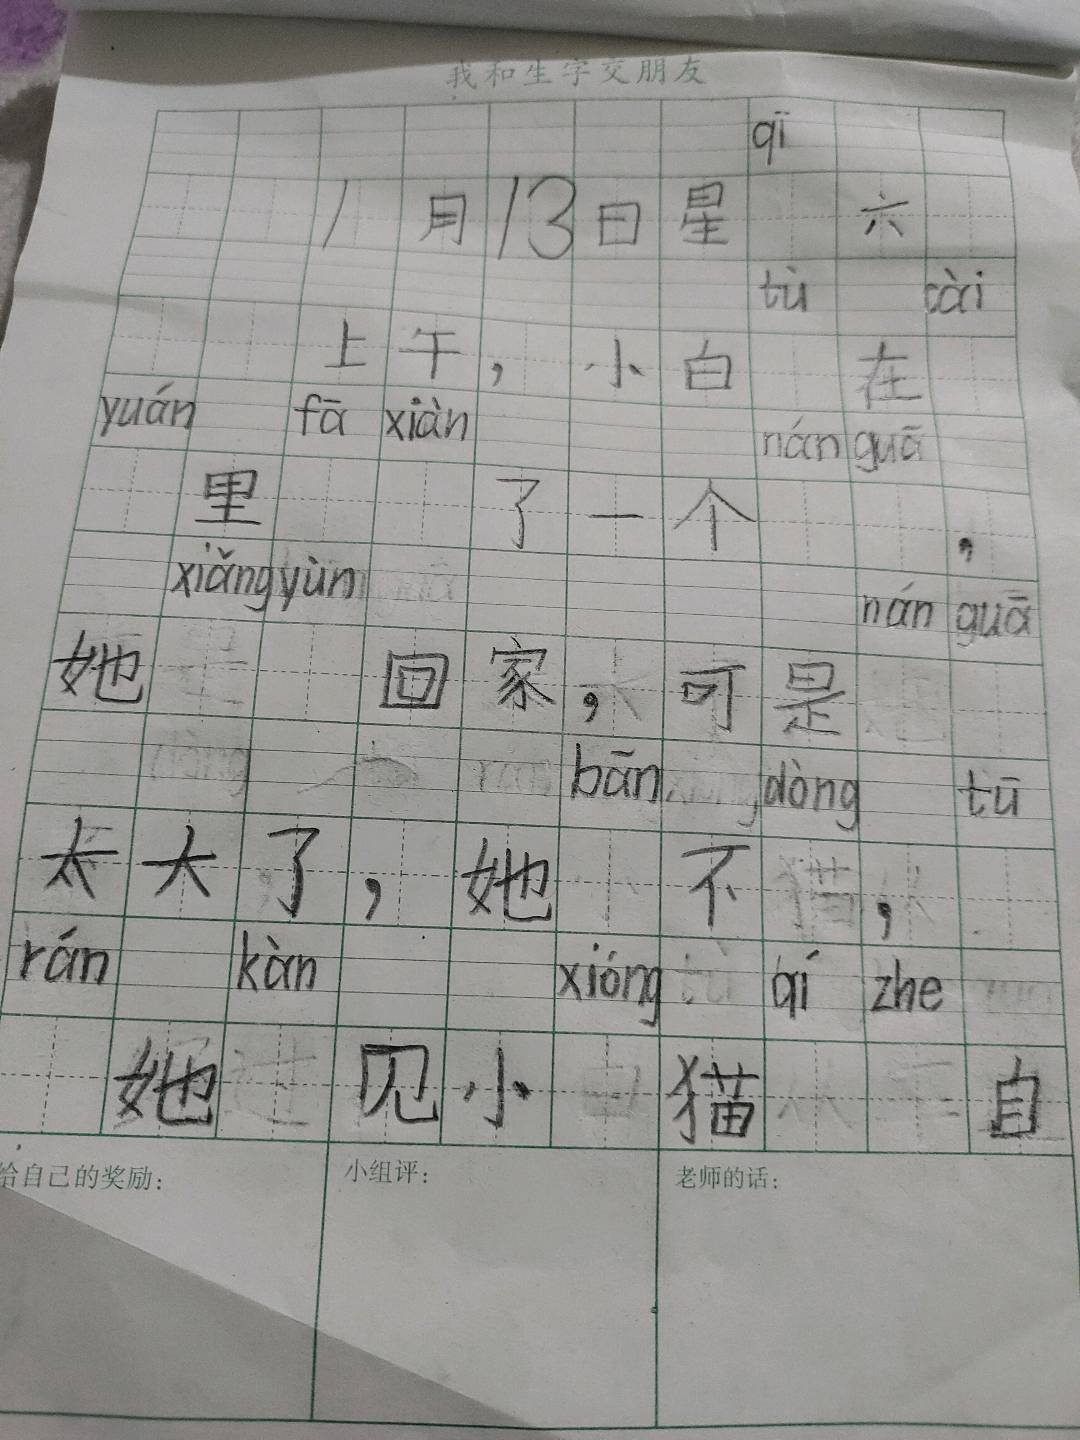 我和生字交朋友
qī
1月13日星 六
tù cài
上午，小白 在
yuán fā xiàn nán guā
里 了一个 ，
xiǎng yùn nán guā
她 回家，可是
bān dòng tū
太大了，她 不 ，
rán kàn xióng qí zhe
她 见小 猫 自
给自己的奖励：
小组评：
老师的话：